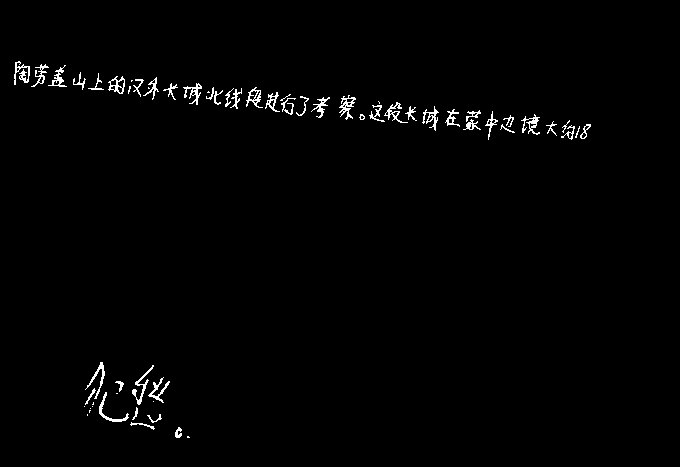 陶劳盖山上的汉外长城北线段进行了考察。这段长城在蒙中边境大约18